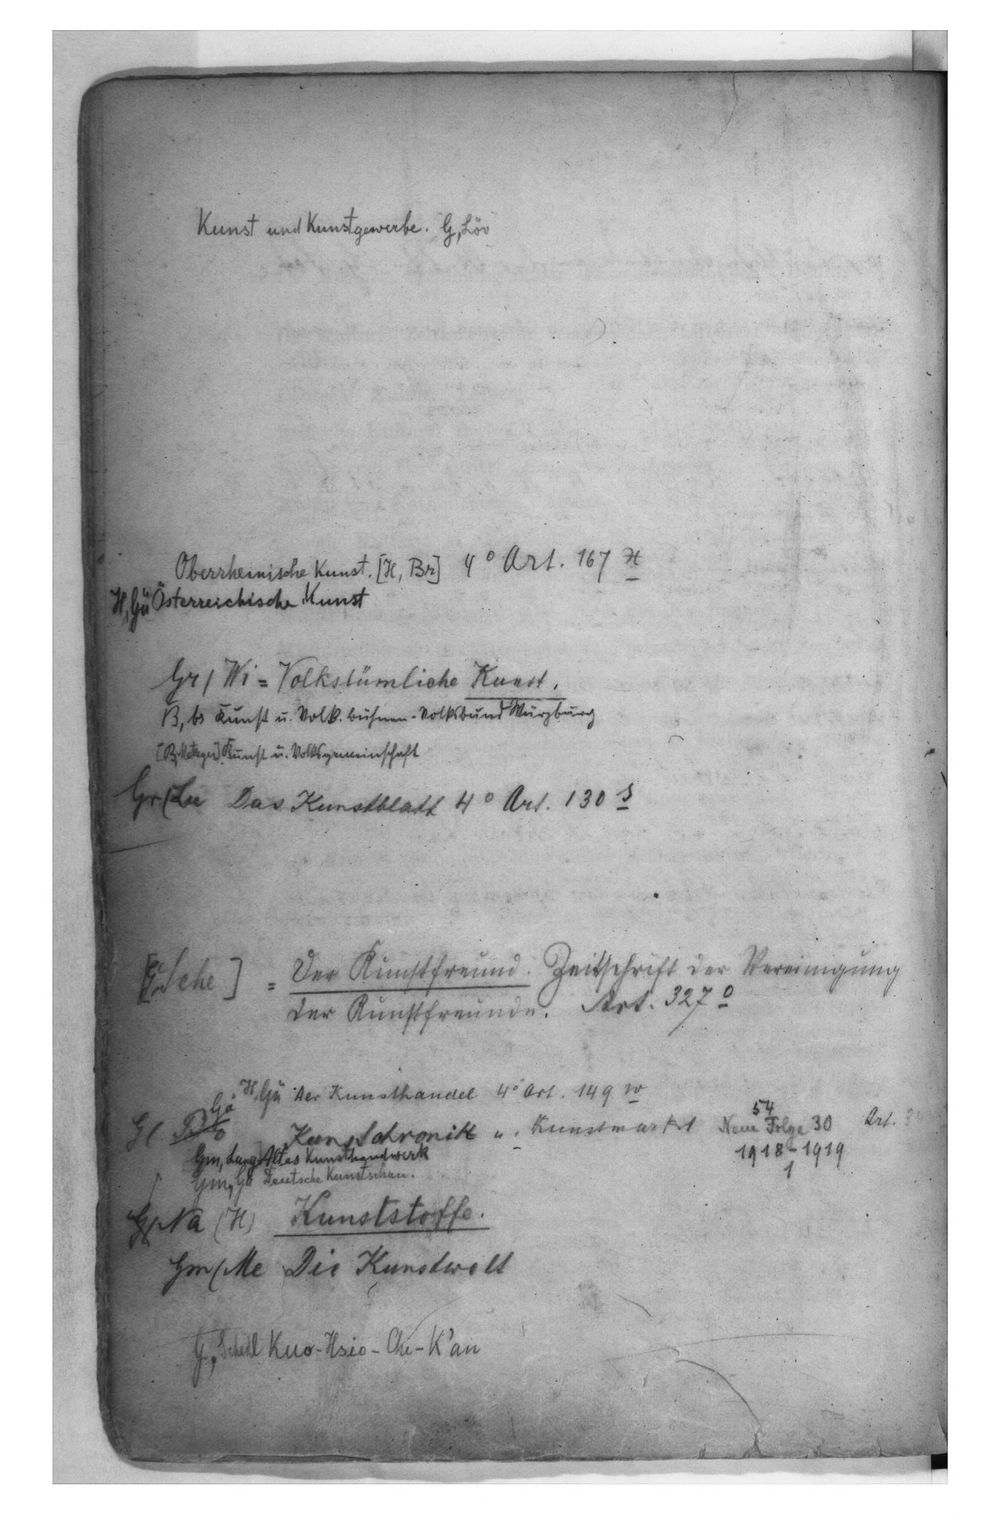 Kunst und Kunstgewerbe. G, Löv
Oberrheinische Kunst. [H, Br] 4° Art. 167 H
H, Gü Österreichische Kunst
Gr / Wi = Volkstümliche Kunst.
B, br Kunst u. Volk. bühnen-Volksbund Würzburg
[B, Metzger] Kunst u. Volksgemeinschaft
Gr (Lee Das Kunstblatt 4° Art. 130 s
/che] = Der Kunstfreund. Zeitschrift der Vereinigung
der Kunstfreunde. Art. 327 o
H, Gü Der Kunsthandel 4° Art. 149 w
Gü
Gl. Kunstchronik u. Kunstmarkt Neue Folge 30 Art. 3
54
1918-1919
1
Gm, Lang Altes Kunsthandwerk
Gm, Gö Deutsche Kunstschau.
G, Na (H) Kunststoffe.
Gm (Me Die Kunstwelt
G, Schedl Kuo-Hsio-Che-K'an